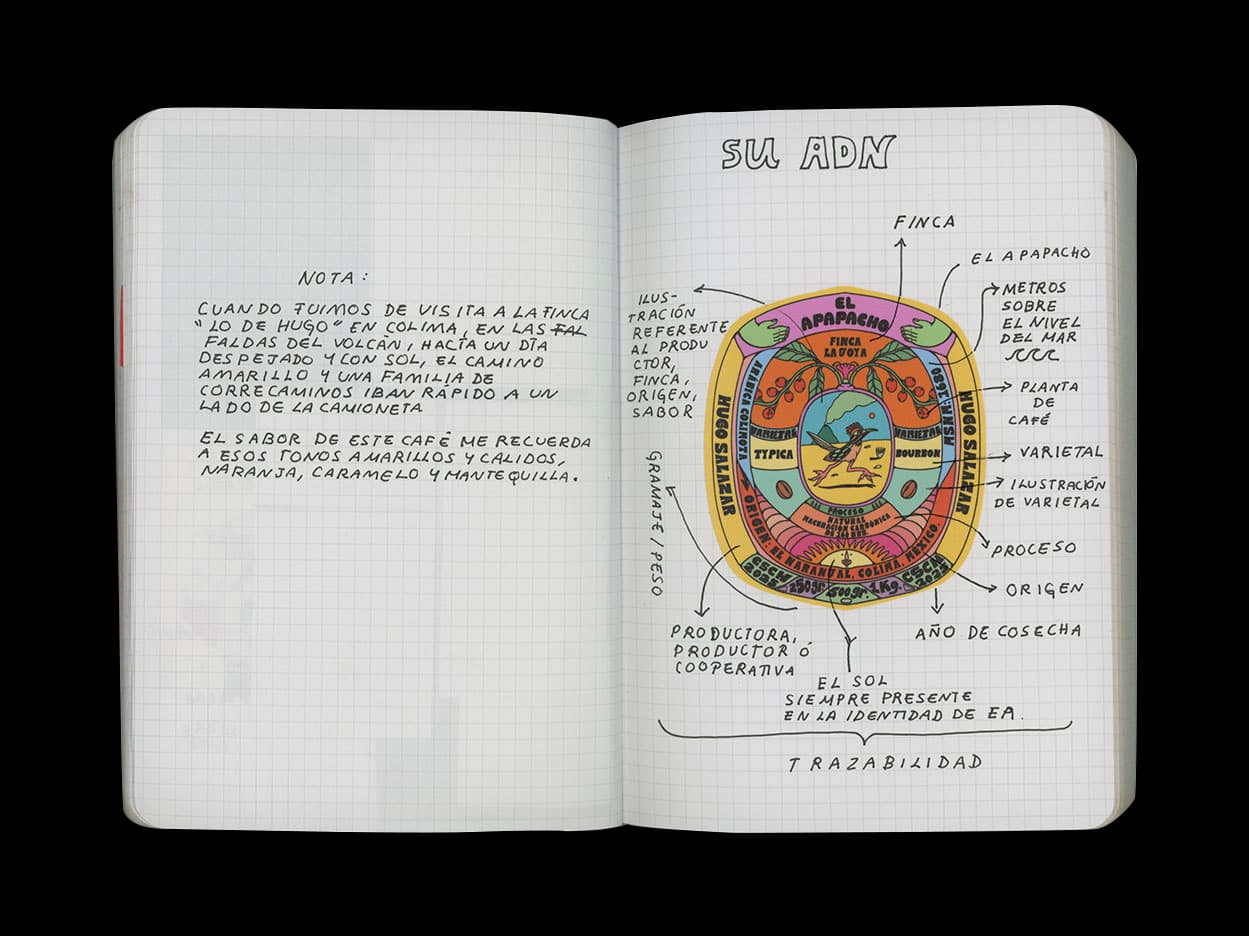 NOTA:
CUANDO FUIMOS DE VISITA A LA FINCA
"LO DE HUGO" EN COLIMA, EN LAS FAL
FALDAS DEL VOLCÁN, HACÍA UN DÍA
DESPEJADO Y CON SOL, EL CAMINO
AMARILLO Y UNA FAMILIA DE
CORRECAMINOS IBAN RÁPIDO A UN
LADO DE LA CAMIONETA
EL SABOR DE ESTE CAFÉ ME RECUERDA
A ESOS TONOS AMARILLOS Y CALIDOS,
NARANJA, CARAMELO Y MANTEQUILLA.
SU ADN
FINCA
EL APAPACHO
METROS
SOBRE
EL NIVEL
DEL MAR
PLANTA
DE
CAFÉ
VARIETAL
ILUSTRACIÓN
DE VARIETAL
PROCESO
ORIGEN
AÑO DE COSECHA
ILUS-
TRACIÓN
REFERENTE
AL PRODU
CTOR,
FINCA,
ORIGEN,
SABOR
GRAMAJE / PESO
PRODUCTORA,
PRODUCTOR Ó
COOPERATIVA
EL SOL
SIEMPRE PRESENTE
EN LA IDENTIDAD DE EA.
TRAZABILIDAD
EL
APAPACHO
FINCA
LA JOYA
HUGO SALAZAR
HUGO SALAZAR
ARABICA COLIMOTA
MSNM: 1650
VARIEZAL
TYPICA
VARIEZAL
BOURBON
PROCESO
NATURAL
MACERACIÓN CARBÓNICA
DE 260 HRS
ORIGEN: EL NARANJAL, COLIMA, MÉXICO.
CSCH
2025
250gr.
500gr.
1Kg.
CSCH
2025